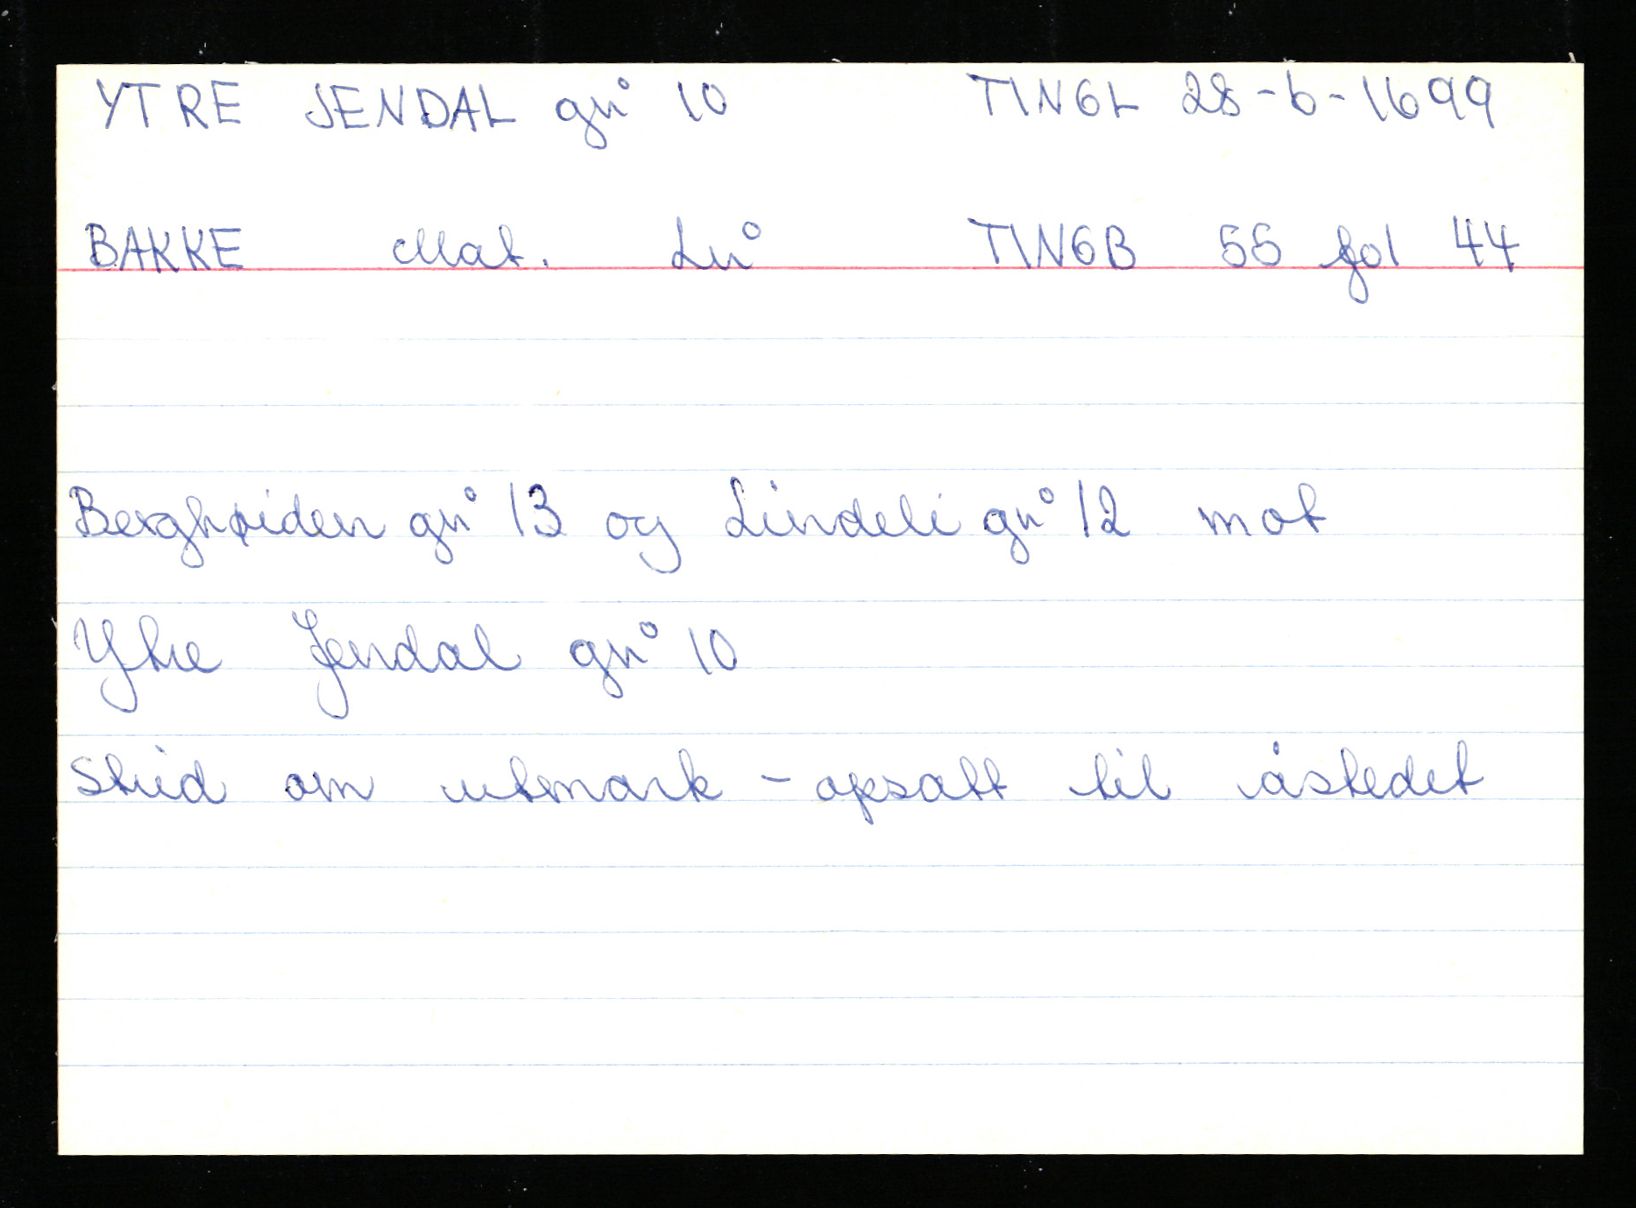 YTRE JENDAL gn° 10 TINGL 28-6-1699
BAKKE Mat. Ln° TINGB 55 fol 44
Berghøiden gn° 13 og Lindeli gn° 12 mot
Ytre Jendal gn° 10
Strid om utmark - opsatt til åstedet